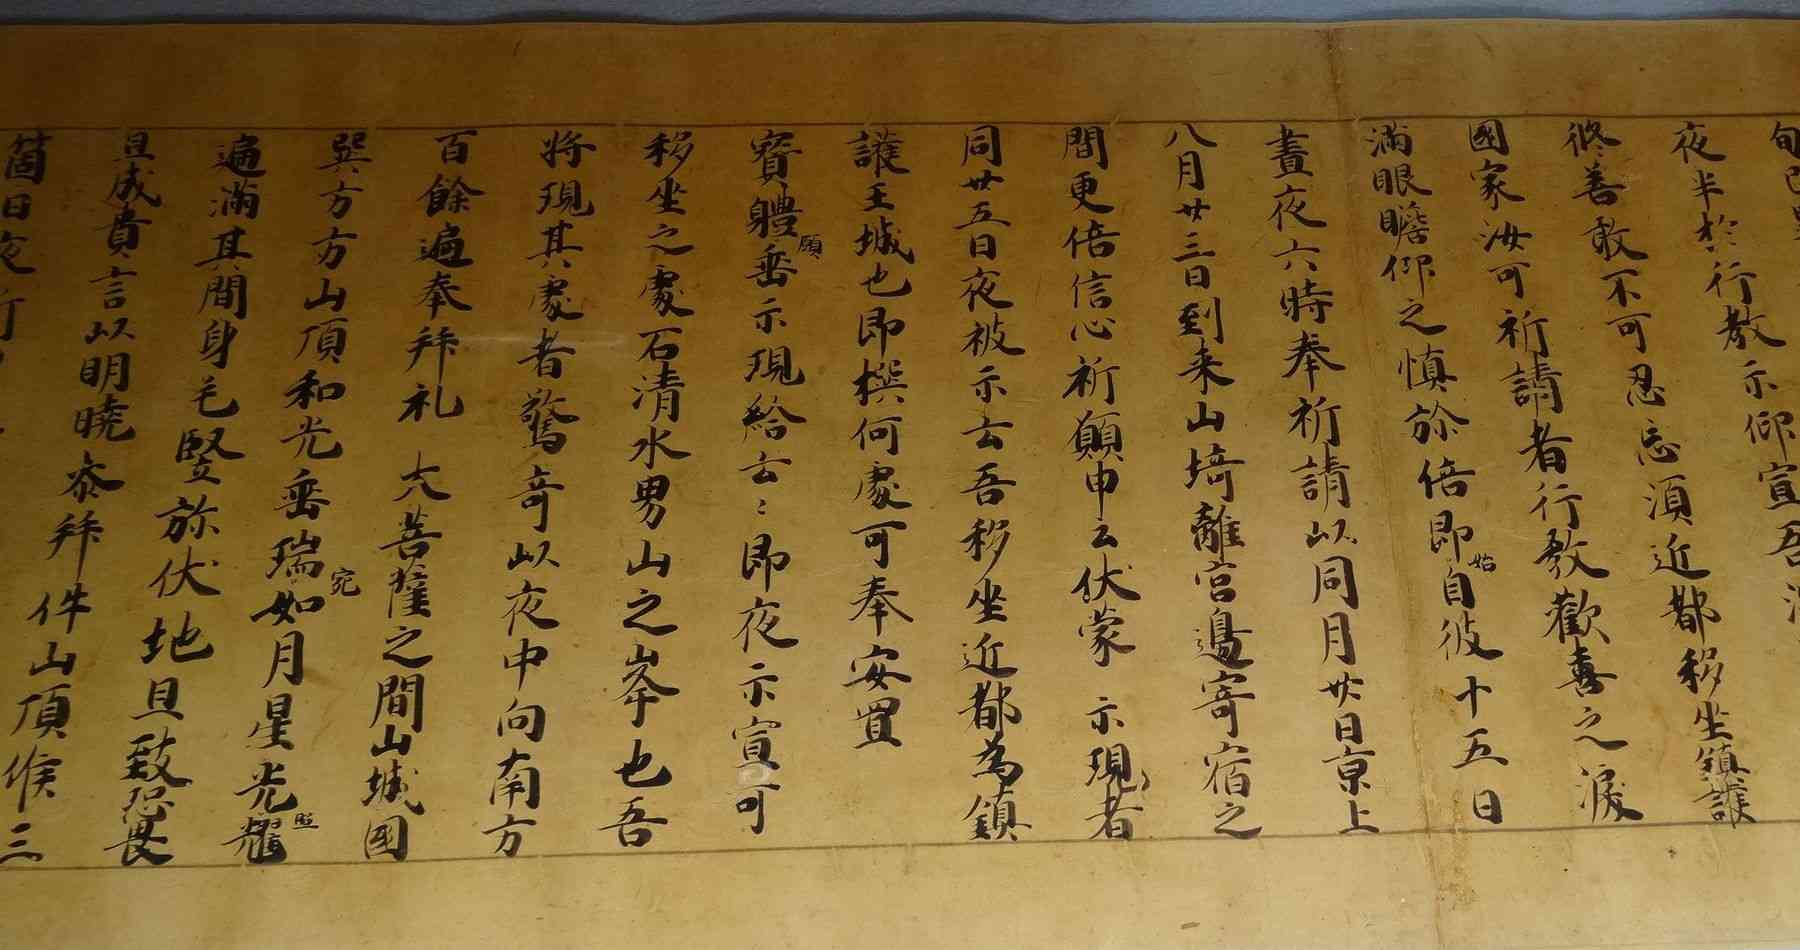 夜半於行教示仰宣吾
終善敢不可忍忘須近都移坐鎮護
國家汝可祈請者行教歡喜之淚
滿眼瞻仰之慎弥倍即始自彼十五日
晝夜六時奉祈請以同月廿日京上
八月廿三日到来山埼離宮邊寄宿之
間更倍信心祈願申云伏蒙 示現者
同廿五日夜被示云吾移坐近都為鎮
護王城也即撰何處可奉安置
寳體願垂示現給云〻即夜示宣可
移坐之處石清水男山之峯也吾
將現其處者驚奇以夜中向南方
百餘遍奉拜礼 大菩薩之間山城國
巽方方山頂和光垂瑞宛如月星光照耀
遍滿其間身毛竪弥伏地且致恐畏
且成貴言以明曉参拜件山頂候三
箇日夜祈